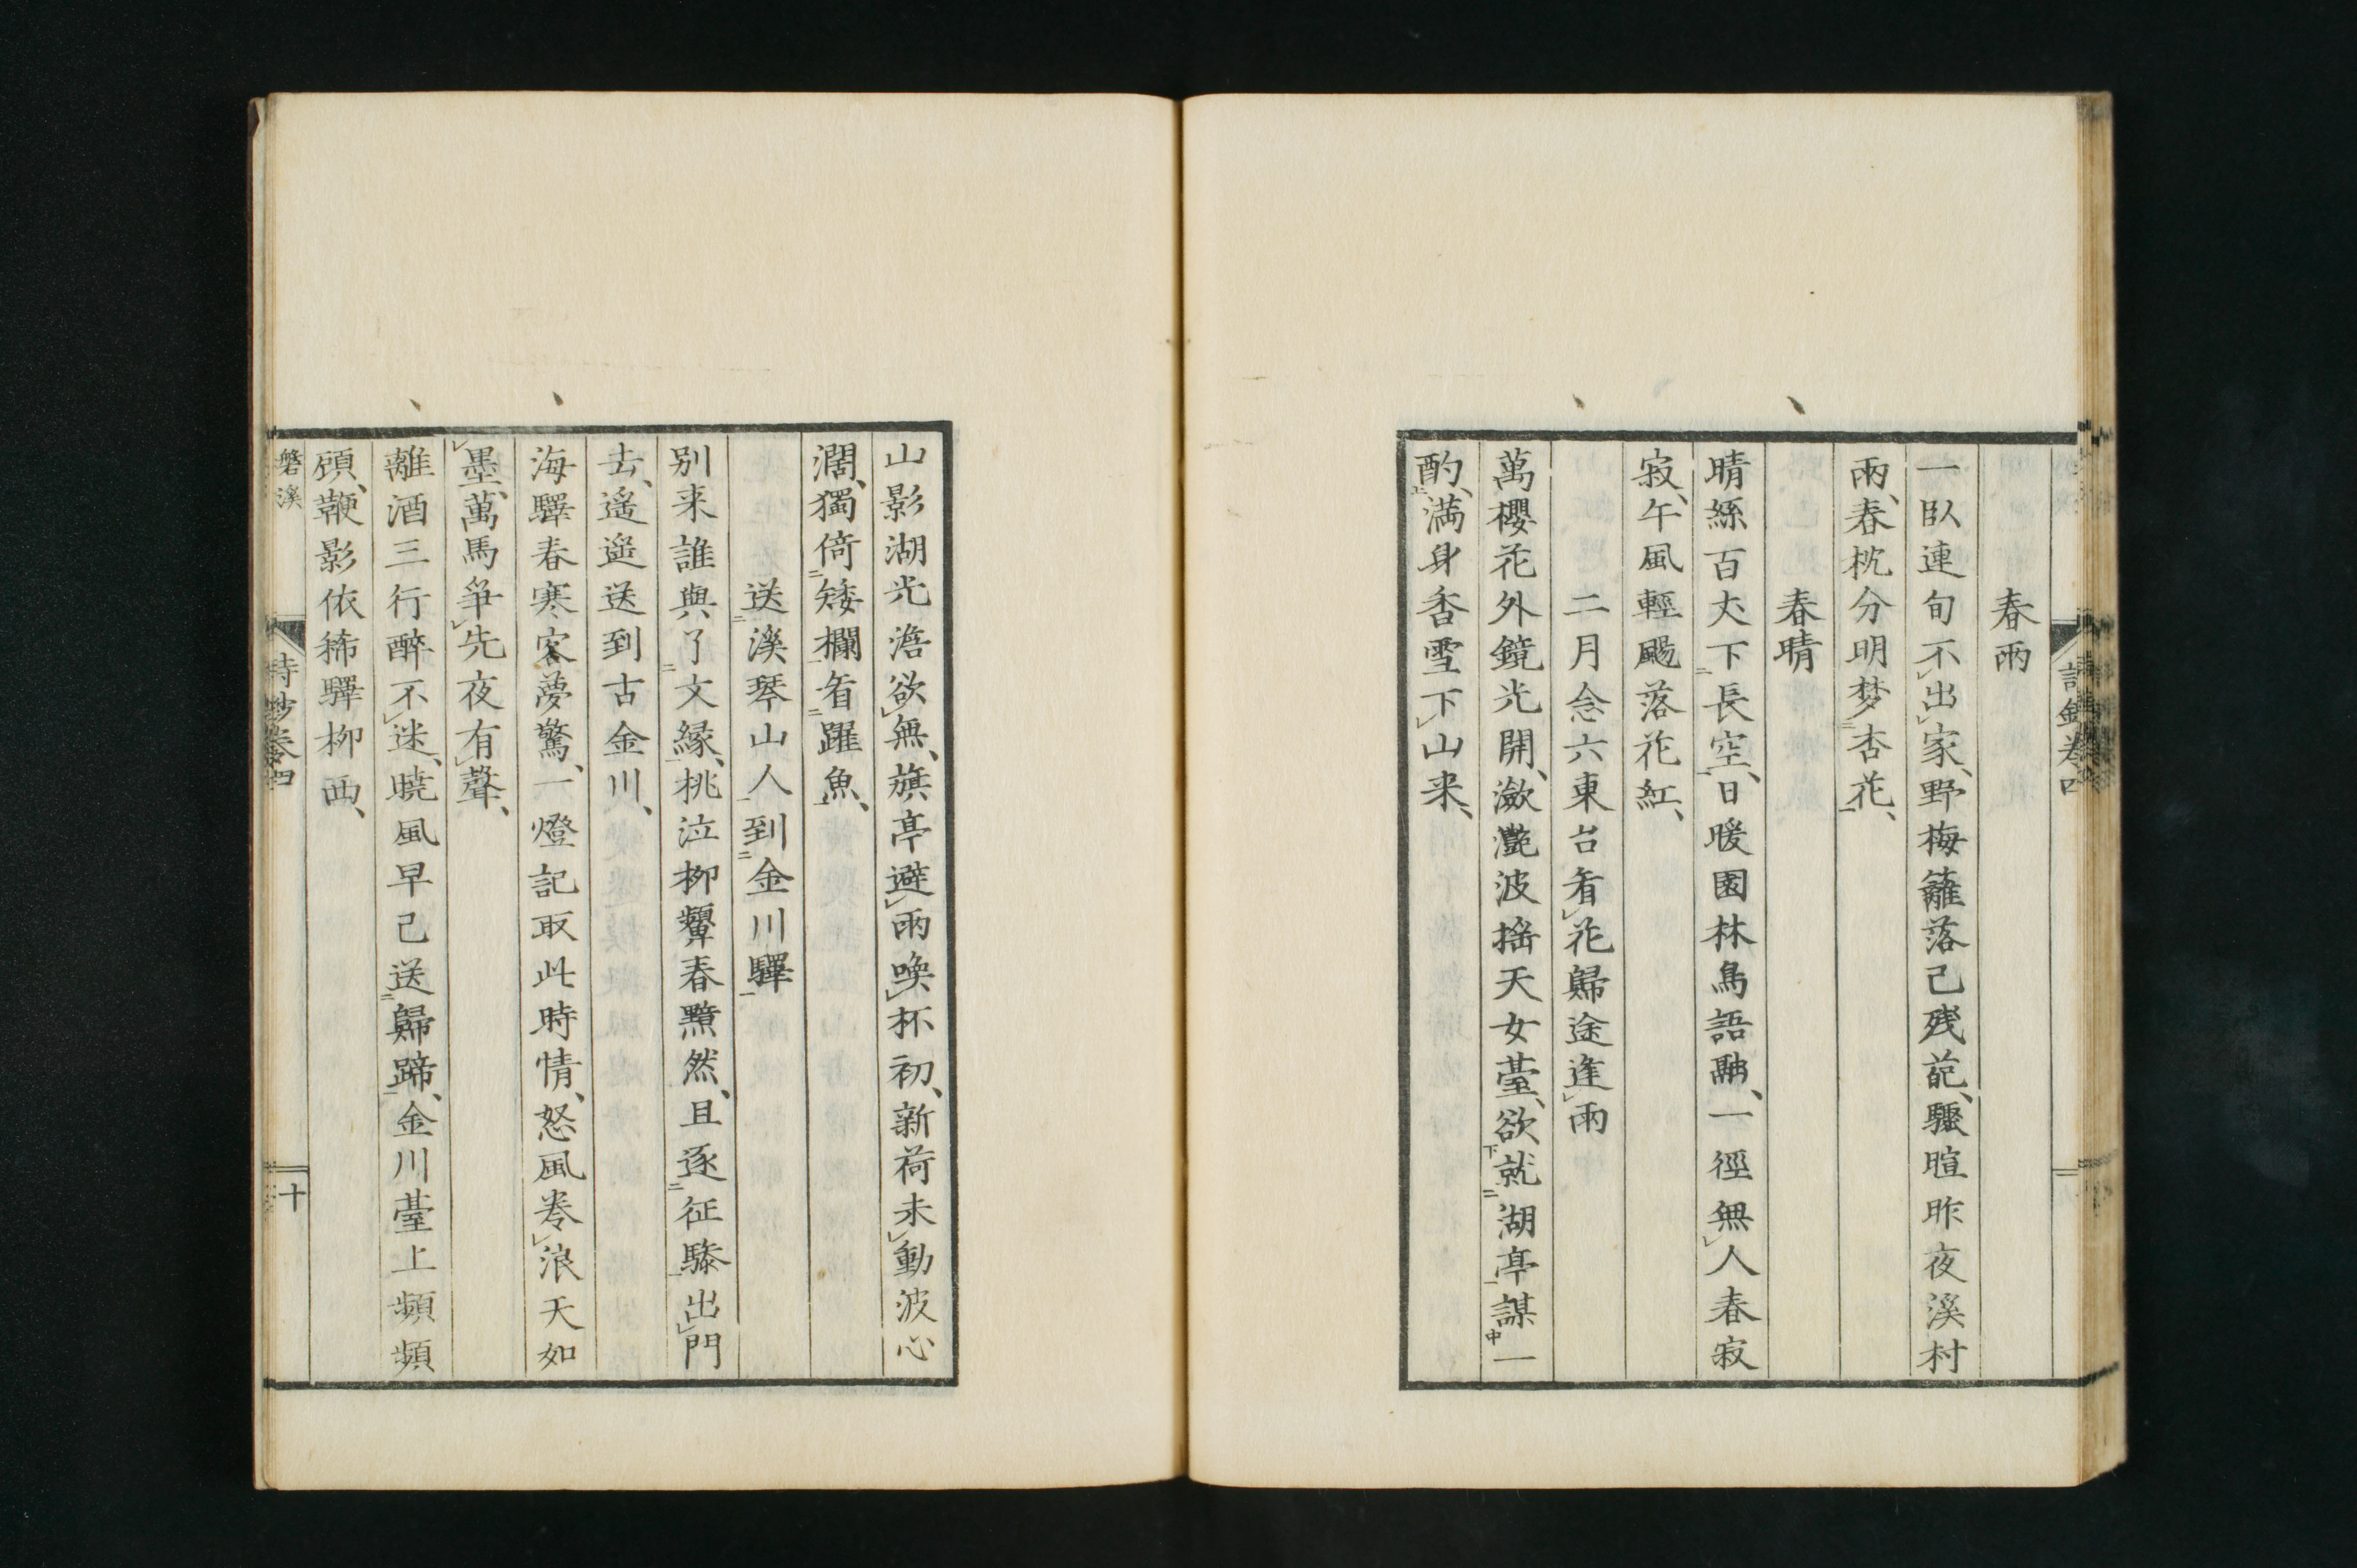 春雨
一臥連旬不出家、野梅籬落已残葩、驟暄昨夜溪村
雨、春枕分明梦杏花、
春晴
晴絲百丈下長空、日暖園林鳥語融、一徑無人春寂
寂、午風輕颺落花紅、
二月念六東台看花歸途逢雨
萬櫻花外鏡光開、瀲灧波搖天女臺、欲就湖亭謀一
酌、満身香雪下山来、
山影湖光澹欲無、旗亭避雨喚杯初、新荷未動波心
濶、獨倚矮欄看躍魚、
送溪琴山人到金川驛
別来誰與了文縁、桃泣柳顰春黯然、且逐征驂出門
去、遥遥送到古金川、
海驛春寒客夢驚、一燈記取此時情、怒風卷浪天如
墨、萬馬爭先夜有聲、
離酒三行醉不迷、曉風早已送歸蹄、金川臺上頻頻
頋、鞭影依稀驛柳西、
磐溪
詩鈔卷四
十